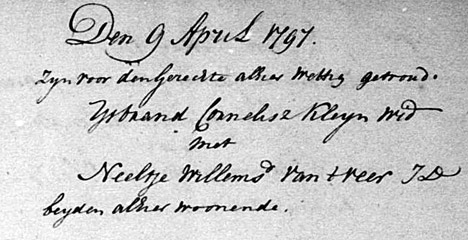 Den 9 April 1797.
Zyn voor den Gerechte alhier Wettig getroud.
Ysbrand Cornelisz Kleyn Wed
Met
Neeltje Willemsd van t veer JD
beyden alhier woonende.